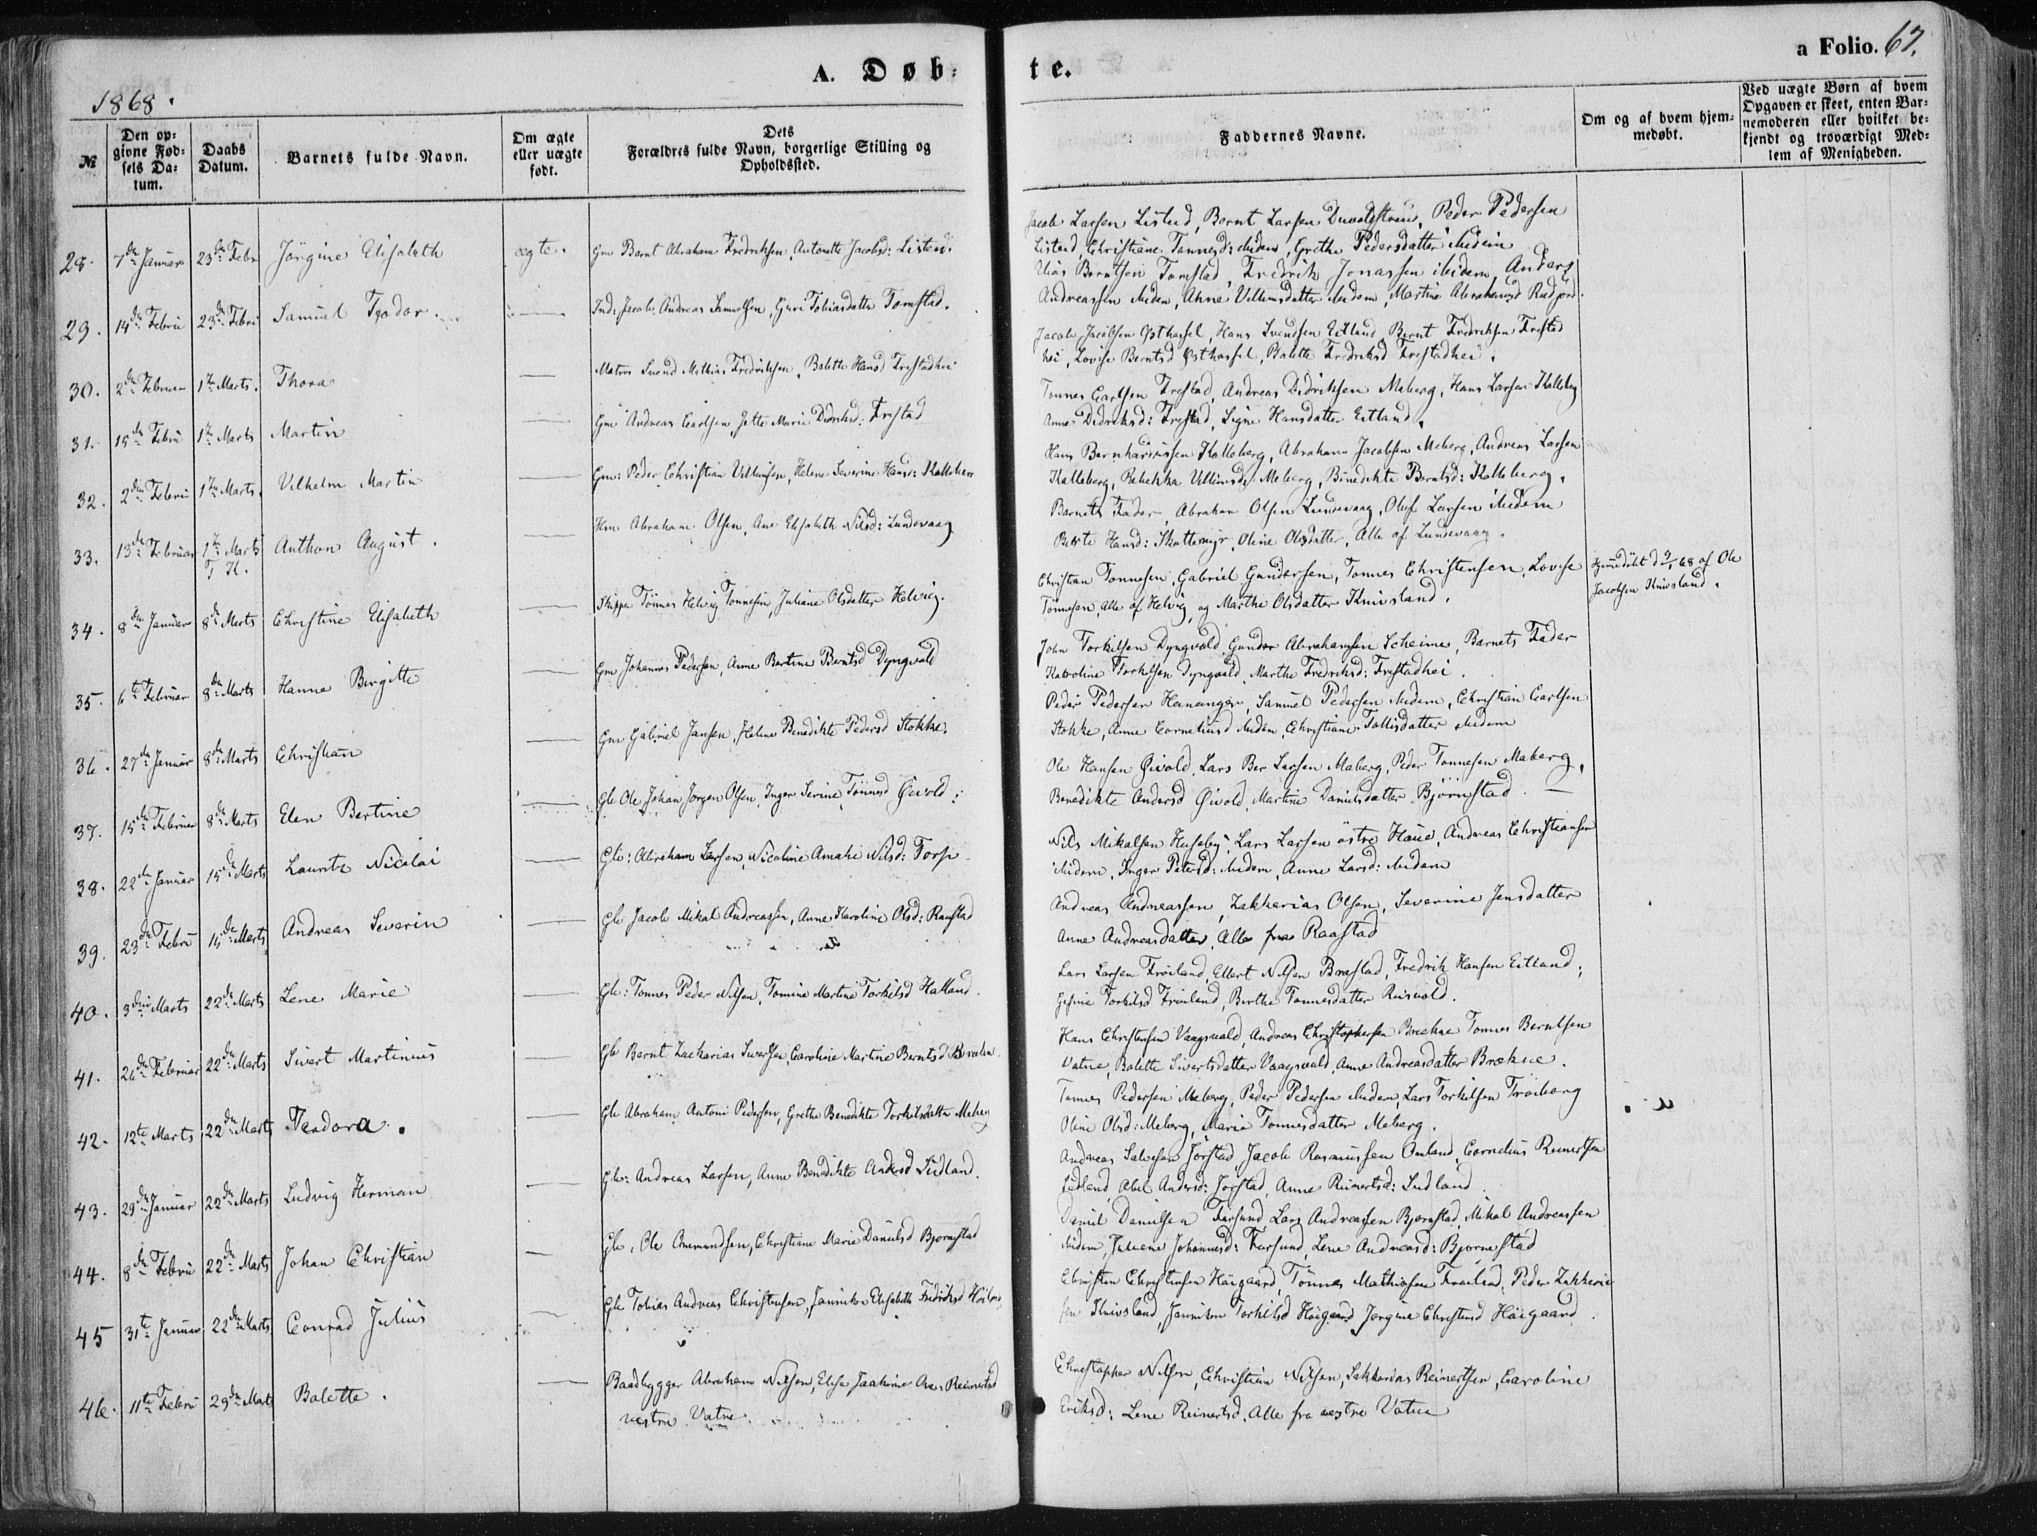 A. Døb=
te.
a Folio. 67.
1868.
№
Den op=
givne Fød=
sels Da=
tum.
Daabs
Datum.
Barnets fulde Navn.
Om ægte
eller uægte
født.
Dets
Forældres fulde Navn, borgerlige Stilling og
Opholdssted.
Faddernes Navne.
Om og af hvem hjem=
medøbt.
Ved uægte Børn af hvem
Opgaven er skeet, enten Bar=
nemoderen eller hvilket be=
kjendt og troværdigt Med=
lem af Menigheden.
28. 7de Januar 23de Febr Jørgine Elisabeth ægte. Gm Bernt Abraham Fredriksen, Antonette Jacobsd: Listed.
Jacob Larsen Listed, Bernt Larsen Peder Pedersen
Listed, Christiane Tønnesd: ibidem, Grethe Pedersdatter ibidem
29. 14de Febru 23de Febru Samuel Teodor. Ind: Jacob Andreas Samuelsen, Guri Tobiasdatter Tomstad.
Elias Berntsen Tomstad, Fredrik Jonassen ibidem, Anders
Andreassen ibidem, Anne Villumsdatter ibidem, Martine Abrahamsd Rudjord.
30. 2de Februar 1ste Marts. Thora Matros Svend Mathias Fredriksen, Bolette Hansd Frestadhei
Jacob Jacobsen Østhassel, Hans Svendsen Eitland, Bernt Fredriksen Frestad
hei, Lovise Berntsd Østhassel, Bolette Fredriksd Frestadhei.
31. 15de Febru 1ste Marts Martin Gm Andreas Carlsen, Jette Marie Didriksd: Frestad
Tønnes Carlsen Frestad, Andreas Didriksen Meberg, Hans Larsen Kalleberg
Anne Didriksd: Frestad, Signe Hansdatter Eitland.
32. 2den Febru 1ste Marts. Vilhelm Martin Gm: Peder Christian Villumsen, Helene Severine Hansd: Kalleberg
Hans Bernhardsen Kalleberg, Abraham Jacobsen Meberg, Andreas Larsen
Kalleberg, Rebekka Villumsd: Meberg, Benedikte Berntsd: Kalleberg.
33. 13de Februar 1ste Marts Anthon August. Hm Abraham Olsen, Ane Elisabeth Nilsd: Lundevaag
T. H.
Barnets Fader, Abraham Olsen Lundevaag, Oluf Larsen ibidem
Berte Hansd: Skattemyr, Oline Olsdatter, Alle af Lundevaag.
34. 8de Januar 8de Marts Christine Elisabeth Skipper Tønnes Helvig Tønnesen, Juliane Olsdatter Helvig.
Christian Tønnesen, Gabriel Gundersen, Tønnes Christensen, Lovise
Tønnesen, alle af Helvig, og Marthe Olsdatter Knivsland.
Hjemmedøbt d 9/1 68 af Ole
Jacobsen Knivsland.
35. 6te Februar 8de Marts Hanne Birgitte Gm Johannes Pedersen, Anne Bertine Berntsd Dyngvold
John Torkilsen Dyngvold, Gunder Abrahamsen Scheime, Barnets Fader
Katroline Torkilsen Dyngvold, Marthe Fredriksd: Frestadhei.
36. 27de Januar 8de Marts Christian Gm Gabriel Jansen, Helene Benedikte Pedersd Stokke.
Peder Pedersen Hananger, Samuel Pedersen ibidem, Christian Carlsen
Stokke, Anne Corneliusd ibidem, Christiane Tollisdatter ibidem
37. 15de Februar 8de Marts Elen Bertine Gb Ole Johan Jørgen Olsen, Inger Serine Tønnesd Øivold.
Ole Hansen Øivold, Lars Ber Larsen Maberg, Peder Tønnesen Maberg,
Benedikte Andersd Øivold, Martine Danielsdatter Bjørnstad.
38. 22de Januar 15de Marts Lauritz Nicolai Gb: Abraham Larsen, Nicoline Amalie Nilsd: Torp
Nils Mikalsen Huseby, Lars Larsen østre Haue, Andreas Christiansen
ibidem, Inger Petersd: ibidem, Anne Larsd: ibidem
39. 23de Febru 15de Marts Andreas Severin Gb Jacob Mikal Andreassen, Anne Karoline Olsd: Raastad
Andreas Andreassen, Zakkarias Olsen, Severine Jensdatter
Anne Andreasdatter, Alle fra Raastad
40. 3die Marts 22de Marts Lene Marie Gb: Tønnes Peder Nilsen, Tomine Martine Torkilsd Hatland.
Lars Larsen Frøiland, Ellert Nilsen Brastad, Fredrik Hansen Eitland,
Gesine Torkilsd Frøiland, Berthe Tønnesdatter Reisvold.
41. 26de Februar 22de Marts Sivert Martinius Gb Bernt Zacharias Sivertsen, Caroline Martine Berntsd Brække
Hans Christensen Vaagsvold, Andreas Christophersen Brækne Tønnes Berntsen
Vatne, Bolette Sivertsdatter Vaagsvold, Anne Andreasdatter Brækne.
42. 12te Marts 22de Marts Teodora. Gb Abraham Antoni Pedersen, Grethe Benedikte Torkilsdatter Meberg
Tønnes Pedersen Meberg, Peder Pedersen ibidem, Lars Torkilsen Trøiborg
Oline Olsd: Meberg, Marie Tønnesdatter Meberg.
43. 29de Januar 22de Marts Ludvig Herman Gb: Andreas Larsen, Anne Benedikte Andersd Sudland.
Andreas Salvesen Jørstad, Jacob Rasmussen Omland, Cornelius Reinertsen
Sudland, Abel Andersd: Jørstad, Anne Reinertsd: Sudland
44. 8de Febru 22de Marts Johan Christian Gb: Ole Ommundsen, Christiane Marie Danielsd Bjørnstad
Daniel Danielsen Farsund, Lars Andreassen Bjørnstad, Mikal Andreassen
ibidem, Juliane Johannesd: Farsund, Lene Andreasd: Bjørnestad
45 31te Januar 22de Marts Conrad Julius Gb Tobias Andreas Christensen, Janniken Elisabeth Fredriksd
Christen Christensen Høigaard, Tønnes Mathiasen Peder Zakkarias
sen Knivsland, Janniken Torkilsd Høigaard Jørgine Christensd Høigaard.
46. 11te Febru 29de Marts Bolette. Baadbygger Abraham Nilsen, Elise Joakime Reinertsd
vestre Vatne.
Christopher Nilsen, Christian Nilsen, Zakkarias Reinertsen, Caroline
Eriksd: Lene Reinertsd. Alle fra vestre Vatne